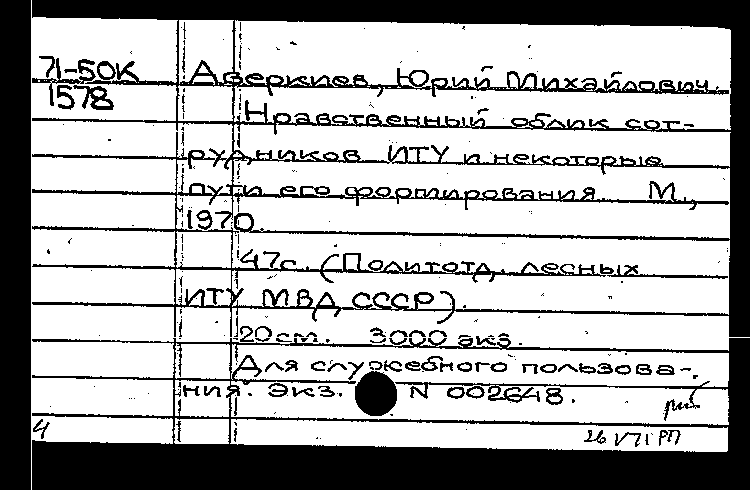 71-50К
1578
Аверкиев, Юрий Михайлович.
Нравственный облик сот-
рудников ИТУ и некоторые
пути его формирования. М.,
1970.
47с. (Политотд. лесных
ИТУ МВД СССР).
20см. 3000 экз.
Для служебного пользова-
ния. Экз. N 002648.
4
26 V 71 РП